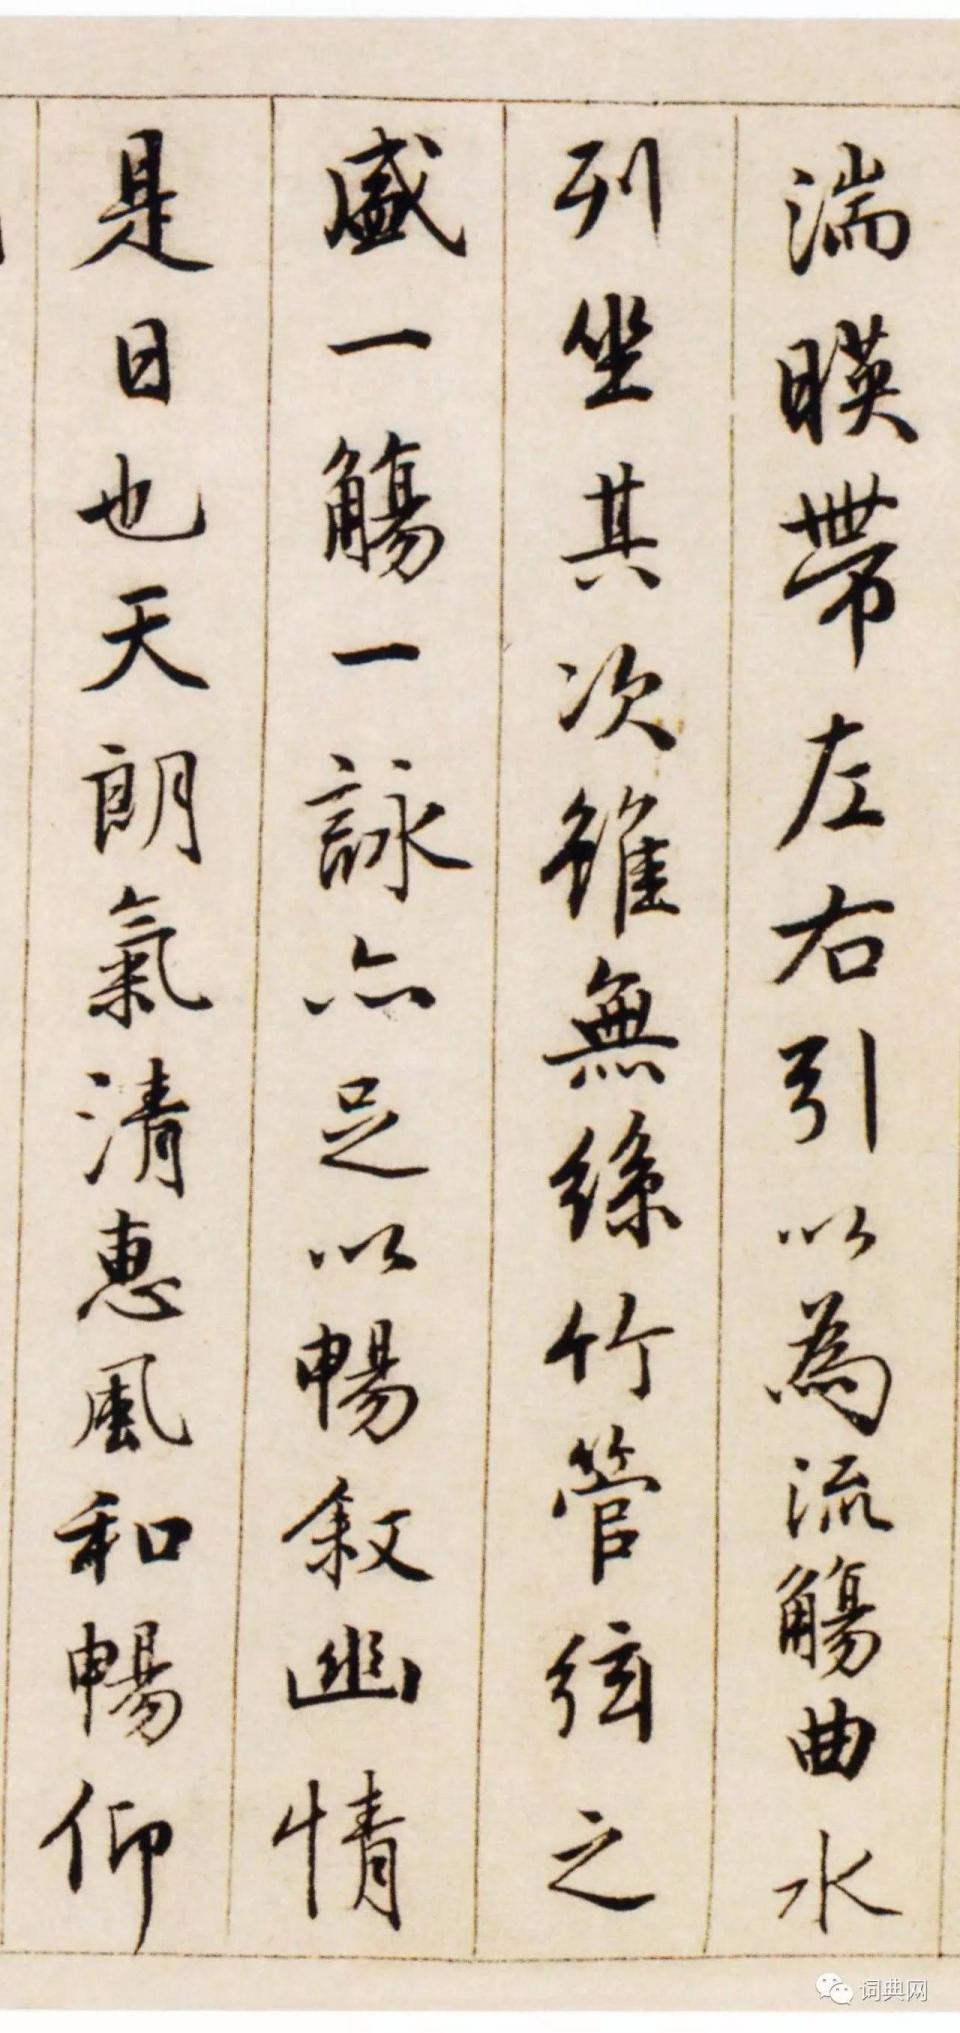 湍暎帶左右引以為流觴曲水
列坐其次雖無絲竹管弦之
盛一觴一詠亦足以暢叙幽情
是日也天朗氣清惠風和暢仰
词典网